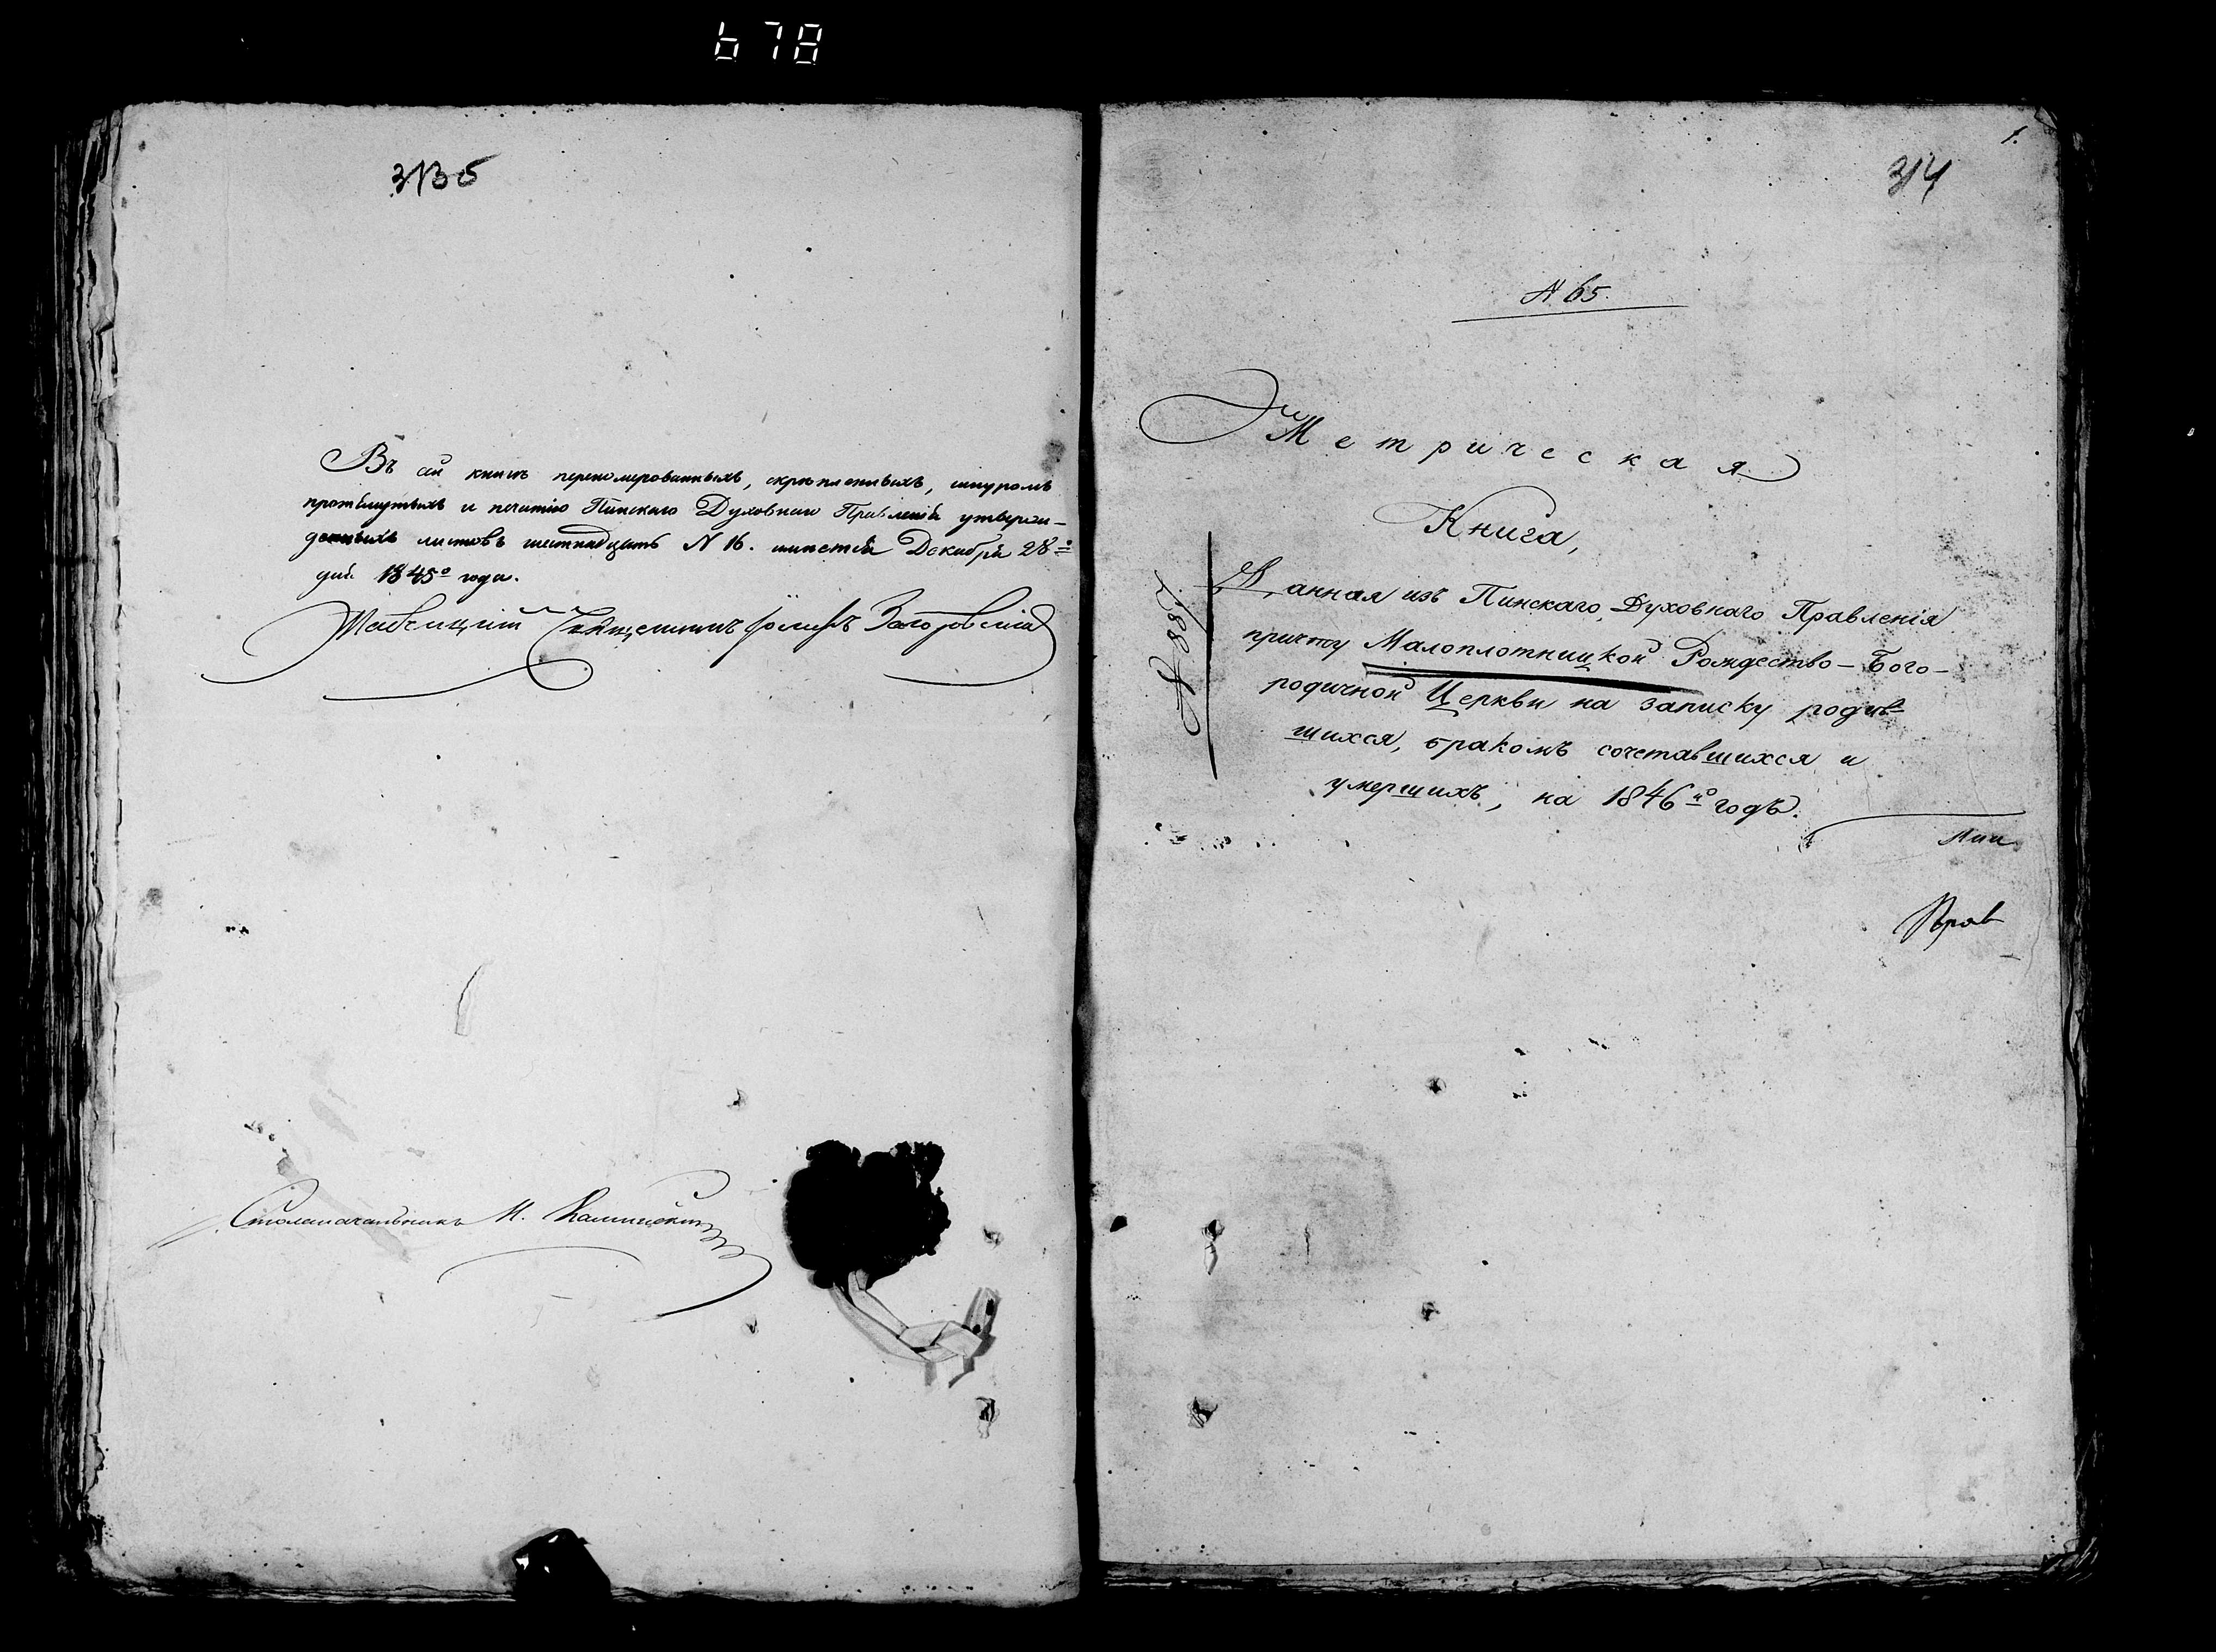 678
313 б
Въ сей книгѣ перенумерованныхъ, скрѣпленныхъ, шнуромъ
и печатію Пинскаго Духовнаго Правленія утверж-
денныхъ листовъ шестнадцать N 16. Декабря 28го
дня 1845го года.
Священникъ
Столоначальникъ
1.
314
N 65.
Метрическая
Книга,
Данная изъ Пинскаго Духовнаго Правленія
причту Малоплотницкой Рождество-Бого-
родичной Церкви на записку родив-
шихся, бракомъ сочетавшихся и
умершихъ, на 1846й годъ.
Пин
Прав